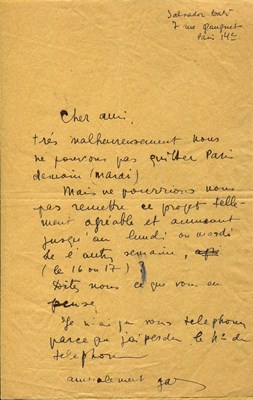 Salvador Dali
7 rue Gauguet
Paris 14e
Cher ami,
très malheureusement nous
ne pouvons pas quitter Paris
demain (mardi)
Mais ne pourrions nous
pas remetre ce projet telle-
ment agréable et amusant
jusqu'au lundi ou mardi
de l'autre semaine,
(le 16 ou 17)?
Dites nous ce que vous en
pense
Je n'ai pu vous telephoner
parce que j'ai perdu le No de
telephone
amicalement